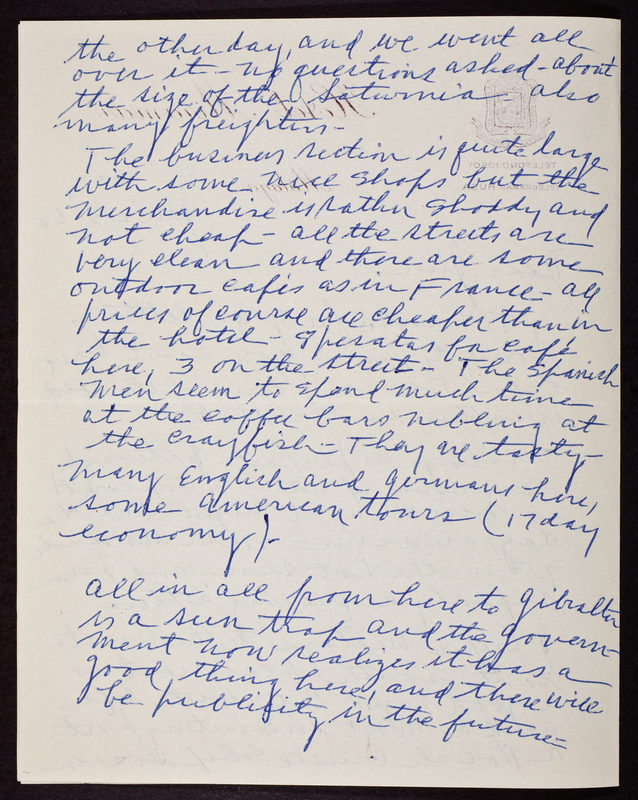 the other day, and we went all
over it - no questions asked - about
the size of the Saturnia - also
many freighters -
The business section is quite large
with some nice shops but the
merchandise is rather shoddy and
not cheap - all the streets are
very clean and there are some
outdoor cafés as in France - all
prices of course are cheaper than in
the hotel - 9 pesatas for café
here, 3 on the street - The Spanish
men seem to spend much time
at the coffee bars nibling at
the crayfish - They are tasty -
Many English and Germans here,
some American tours (17 day
economy) -
All in all from here to Gibraltar
is a sun trap and the govern-
ment now realizes it has a
good thing here, and there will
be publicity in the future -